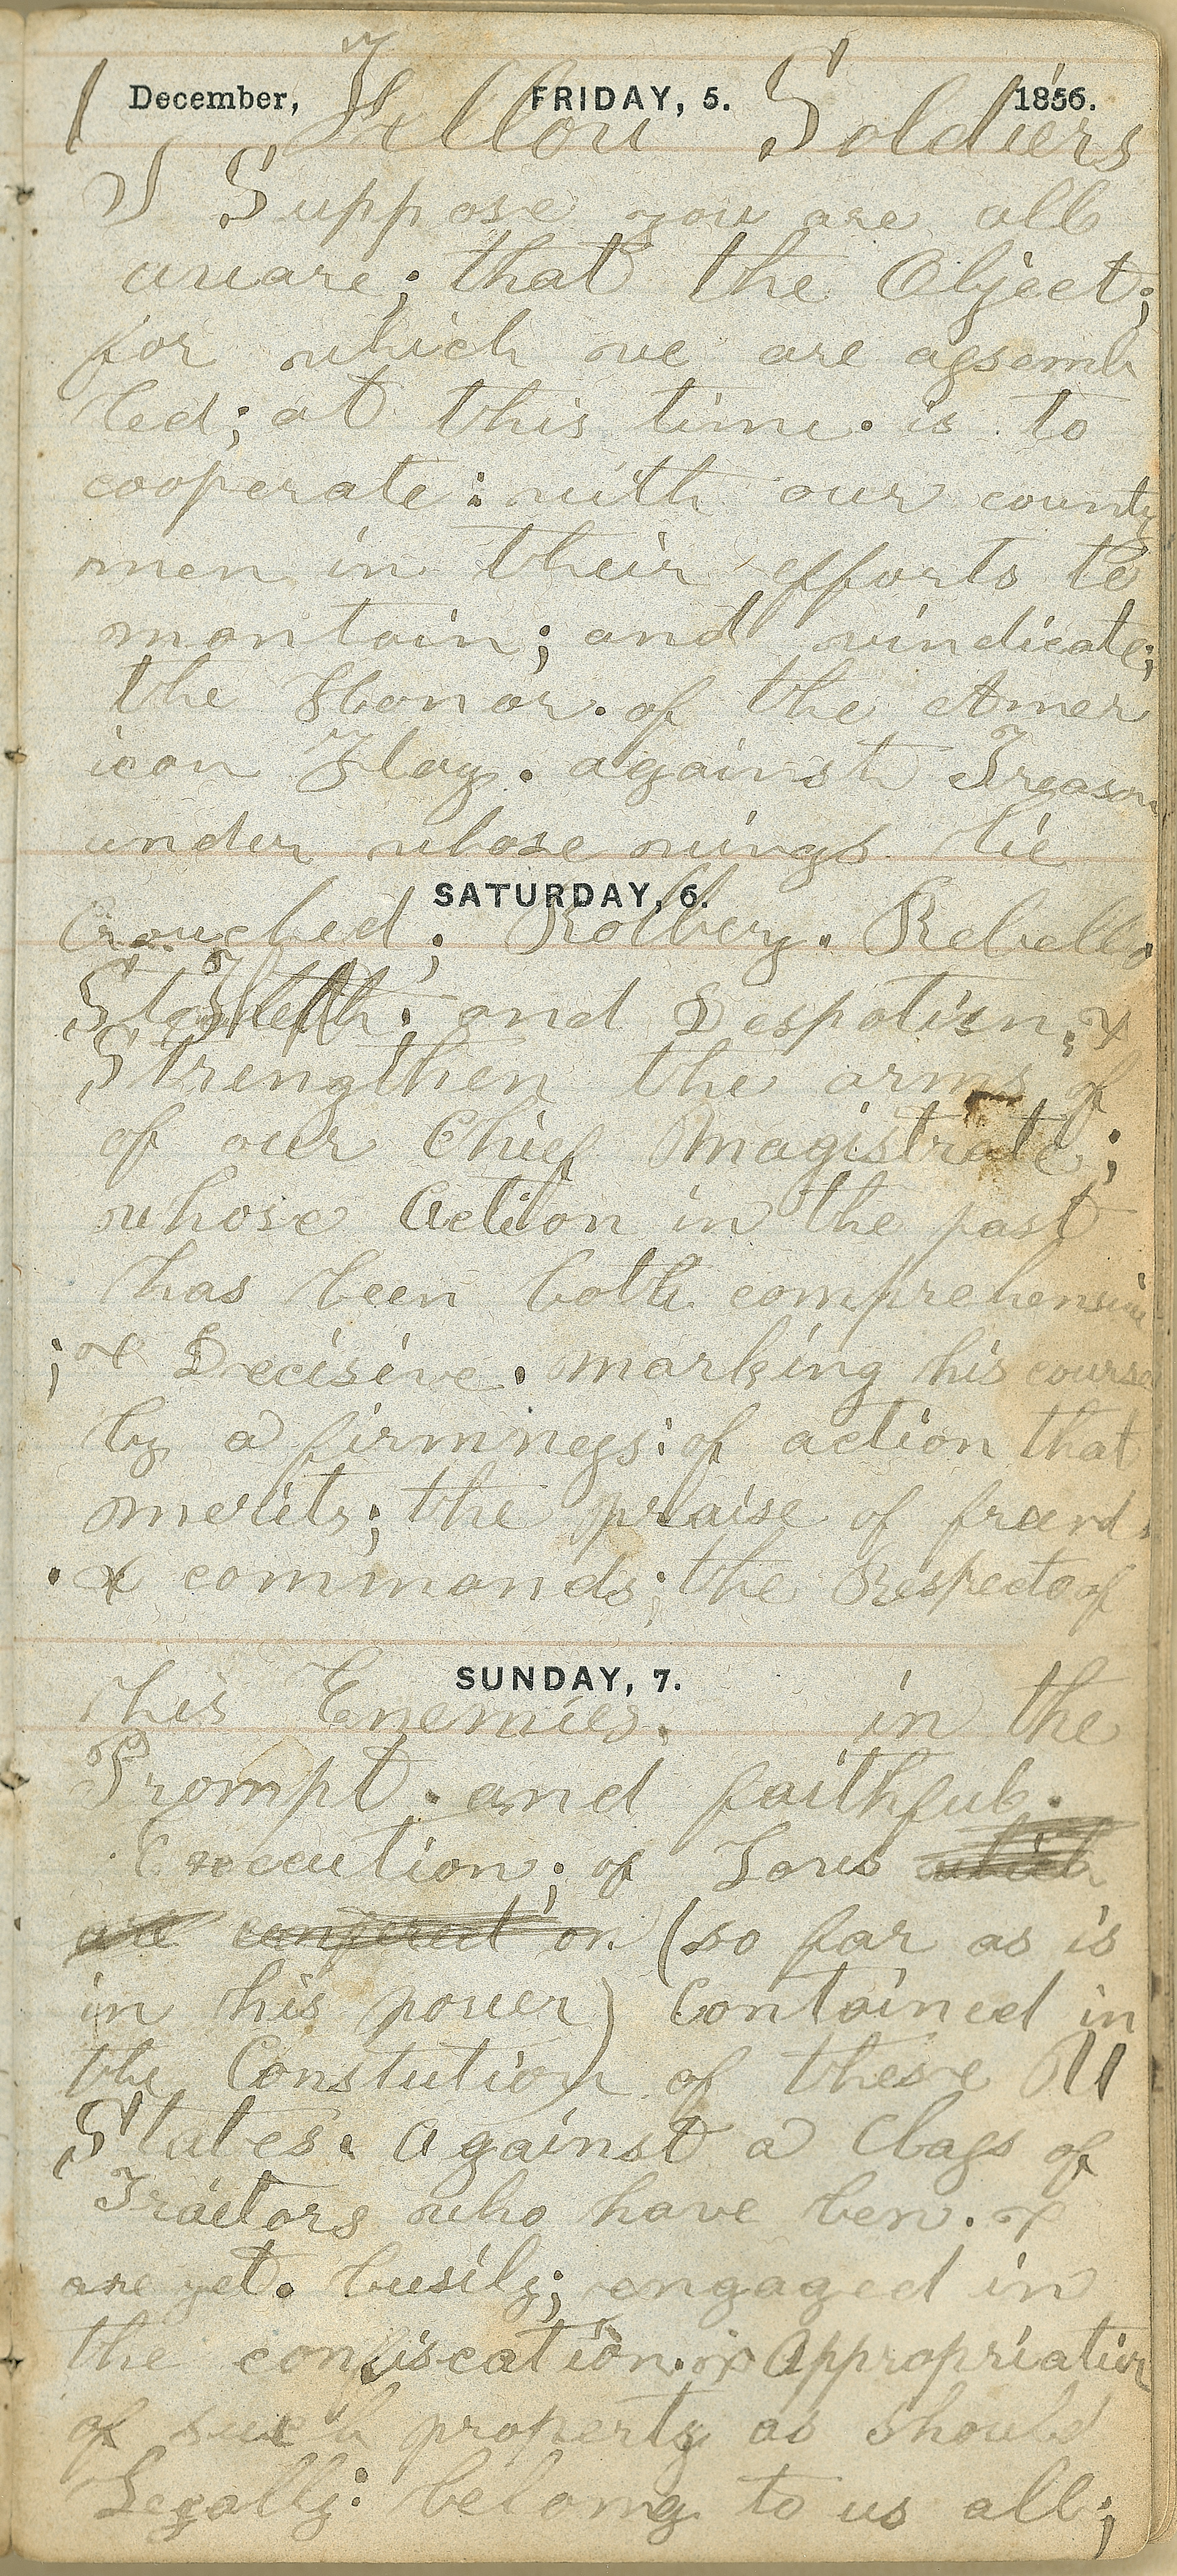 December, FRIDAY, 5. 1856.
1 Fellow Soldiers
I Suppose you are all
aware; that the Object;
for which we are assemb
led; at this time. is to
cooperate: with our county
men in their efforts to
mantain; and vindicate;
the Honor. of the Amer
ican Flag. against Treason
under whose wings lie
SATURDAY, 6.
Crouched; Robbery. Rebell.
Stealth; and Despotism; &
Strengthen the arms of
of our Chief Magistrate;
whose Action in the past
has been both comprehensive
; & Decisive. marking his course
by a firmness: of action that
merits; the praise of friends
. & commands; the Respect of
SUNDAY, 7.
his Enemies. in the
Prompt. and faithful.
Execution; of Laws which
are congered on (so far as is
in his power) Contained in
the Constution of these U
States. Against a Class of
Traitors who have ben. &
are yet. busily; engaged in
the confiscation. & Appropriation
of such property as should
Legally: belong to us all;